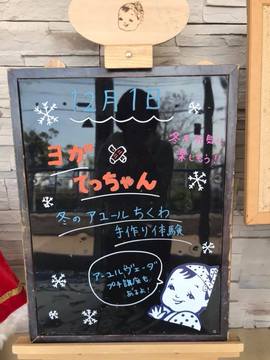 12月1日
ヨガ×
てっちゃん
冬のアユールちくわ
手作り体験
アーユルヴェーダ
プチ講座も
あるよ!